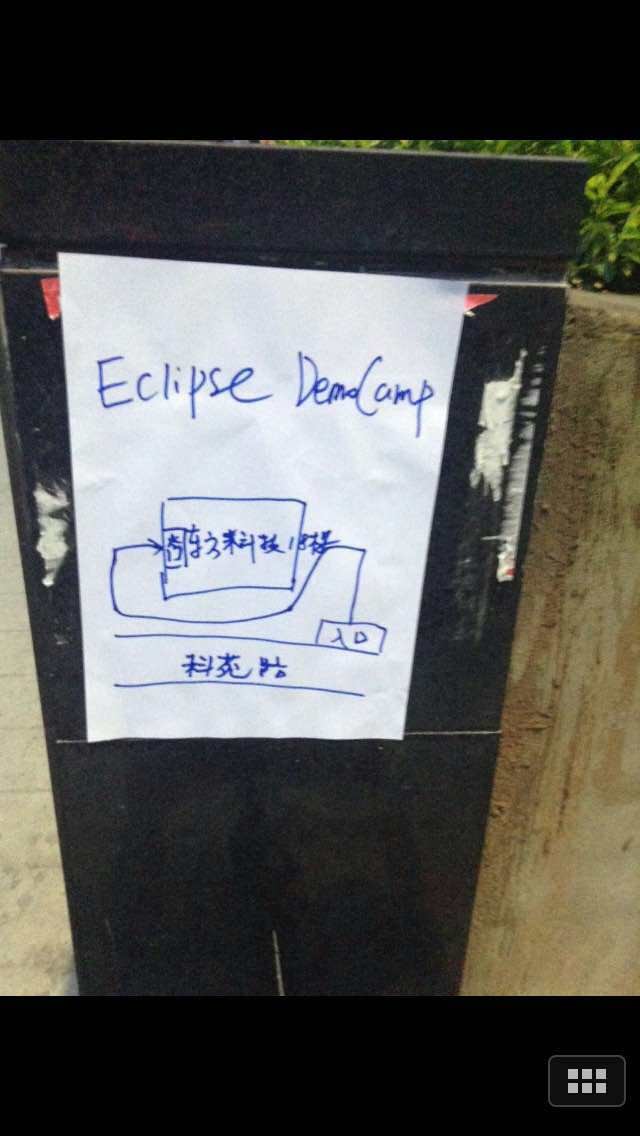 Eclipse DemoCamp
东方科技18楼
入口
科苑路